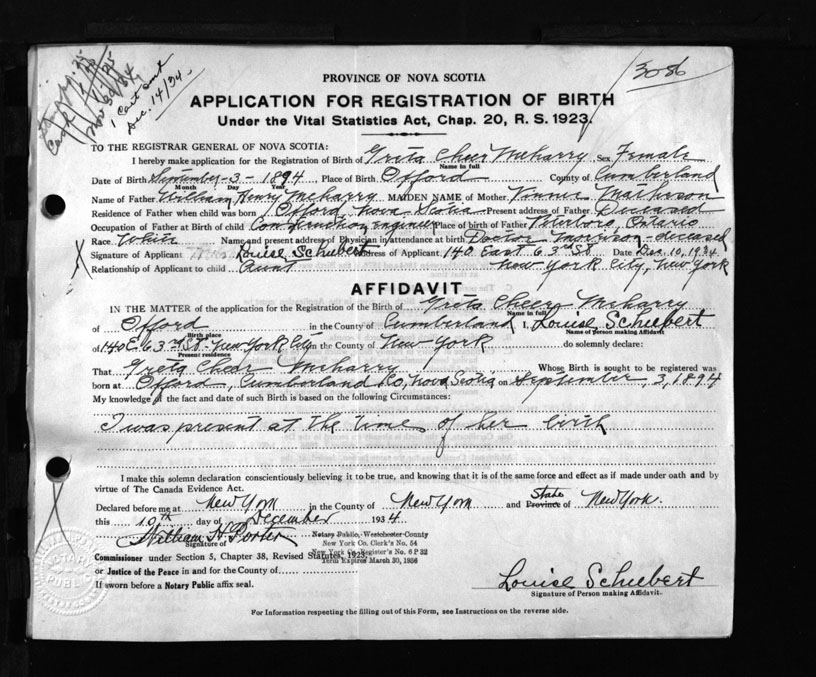 3086
Nov 30/34
1 Cert sent
Dec. 14/34.
PROVINCE OF NOVA SCOTIA
APPLICATION FOR REGISTRATION OF BIRTH
Under the Vital Statistics Act, Chap. 20, R. S. 1923.
TO THE REGISTRAR GENERAL OF NOVA SCOTIA:
I hereby make application for the Registration of Birth of Greta Cheer Meharry Sex Female
Name in full
Date of Birth September-3-1894 Place of Birth Offord County of Cumberland
Month Day Year
Name of Father William Henry Meharry MAIDEN NAME of Mother Vinnie Matheson
Residence of Father when child was born Offord, Nova Scotia Present address of Father Deceased
Occupation of Father at Birth of child Construction engineer Place of birth of Father Peterboro, Ontario
Race White Name and present address of Physician in attendance at birth Doctor Morrison-deceased
Signature of Applicant Louise Schubert Address of Applicant 140 East 63rd St Date Dec. 10, 1934
Relationship of Applicant to child Aunt New York City, New York
AFFIDAVIT
IN THE MATTER of the application for the Registration of the Birth of Greta Cheer Meharry
Name in full
of Offord in the County of Cumberland I, Louise Schubert
Birth place Name of person making Affidavit
of 140 E. 63rd St. New York City in the County of New York do solemnly declare:
Present residence
That Greta Cheer Meharry Whose Birth is sought to be registered was
born at Offord, Cumberland Co, Nova Scotia on September, 3, 1894
My knowledge of the fact and date of such Birth is based on the following Circumstances:
I was present at the time of her birth
I make this solemn declaration conscientiously believing it to be true, and knowing that it is of the same force and effect as if made under oath and by
virtue of The Canada Evidence Act.
Declared before me at New York in the County of New York and State Province of New York.
this 10th day of December 1934.
William H. Porter
Signature of
Notary Public, Westchester County
New York Co. Clerk's No. 54
New York Co. Register's No. 6 P 32
Term Expires March 30, 1936
Commissioner under Section 5, Chapter 38, Revised Statutes, 1923,
or Justice of the Peace in and for the County of
If sworn before a Notary Public affix seal.
Louise Schubert
Signature of Person making Affidavit.
For Information respecting the filling out of this Form, see Instructions on the reverse side.